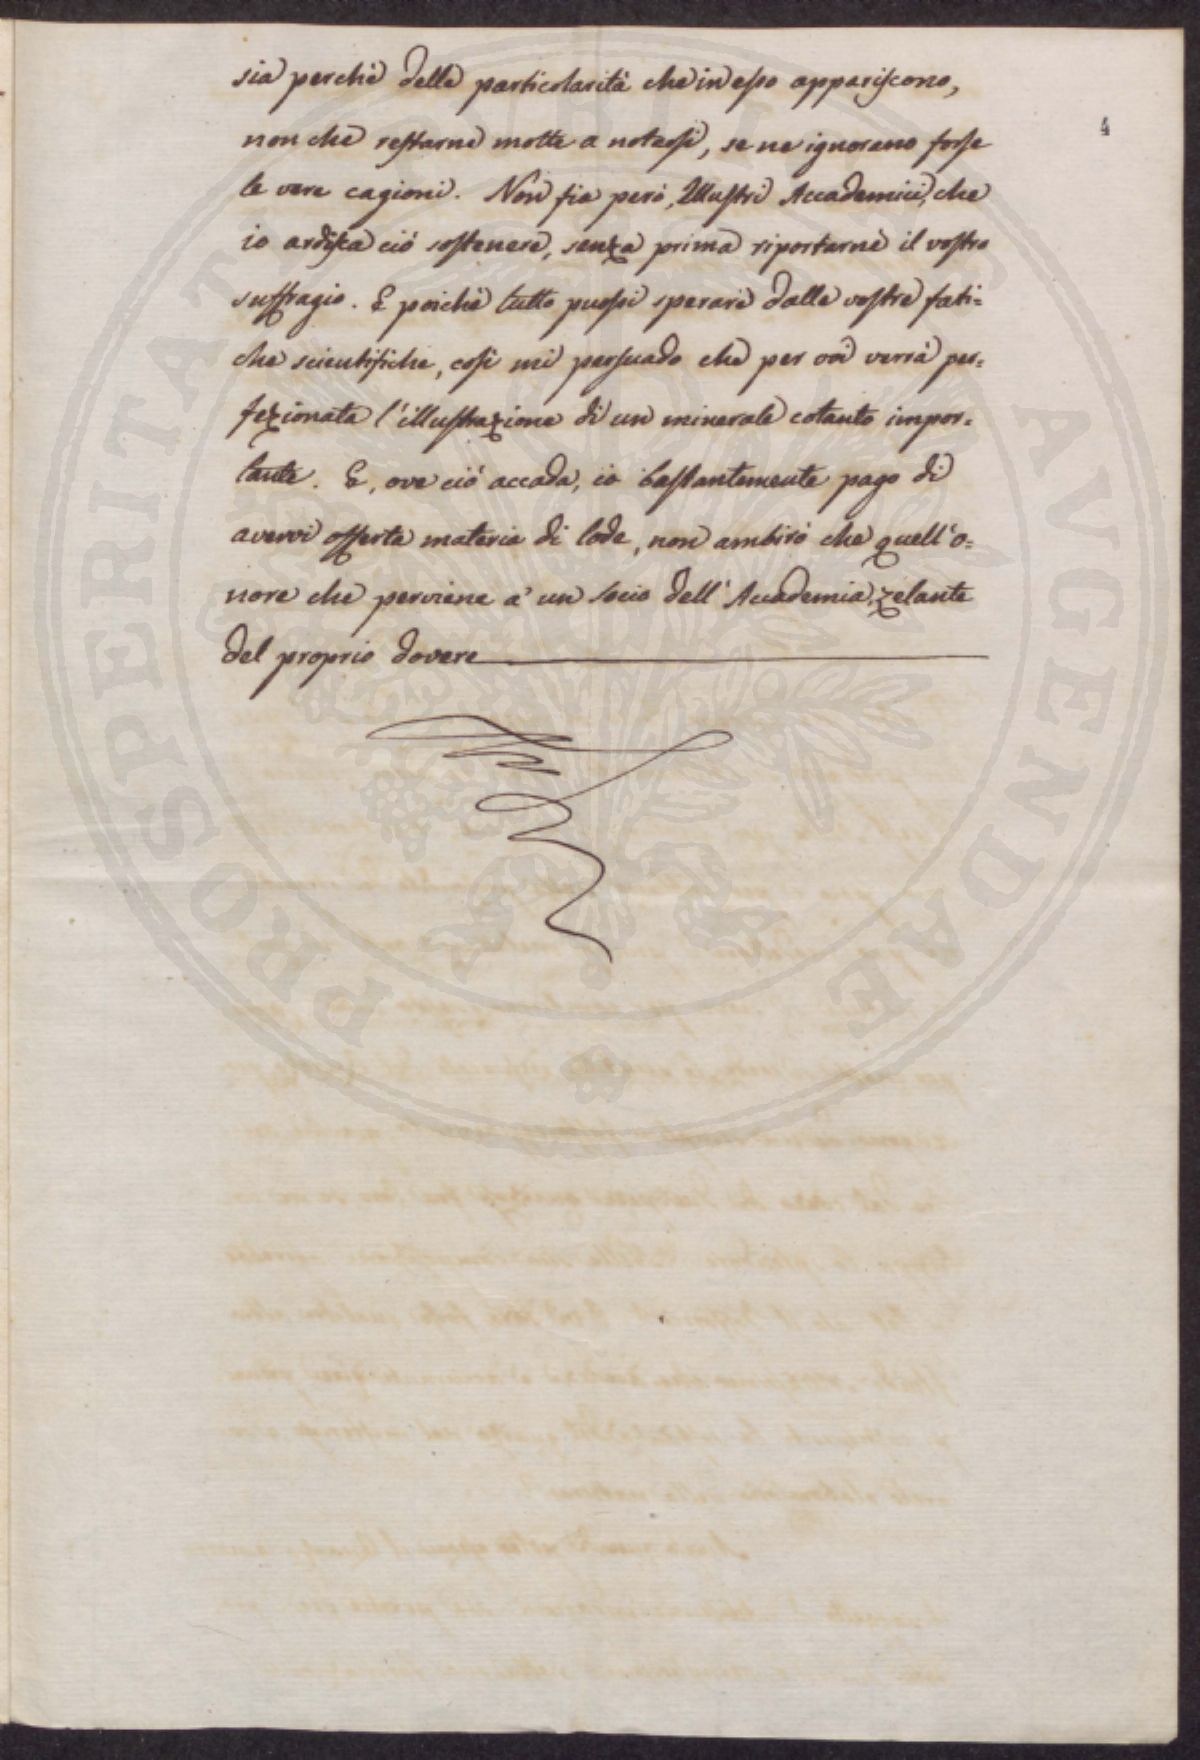 4
sia perchè delle particolarità che in esso appariscono,
non che restarne molte a notarsi, se ne ignorano forse
le vere cagioni. Non fia però, Illustri Accademici, che
io ardisca ciò sostenere, senza prima riportarne il vostro
suffragio. E poichè tutto puossi sperare dalle vostre fati=
che scientifiche, così mi persuado che per voi verrà per=
fezionata l'illustrazione di un minerale cotanto impor=
tante. E, ove ciò accada, io bastantemente pago di
avervi offerta materia di lode, non ambirò che quell'o=
nore che perviene a' un socio dell'Accademia, zelante
del proprio dovere
PROSPERITATI AVGENDAE